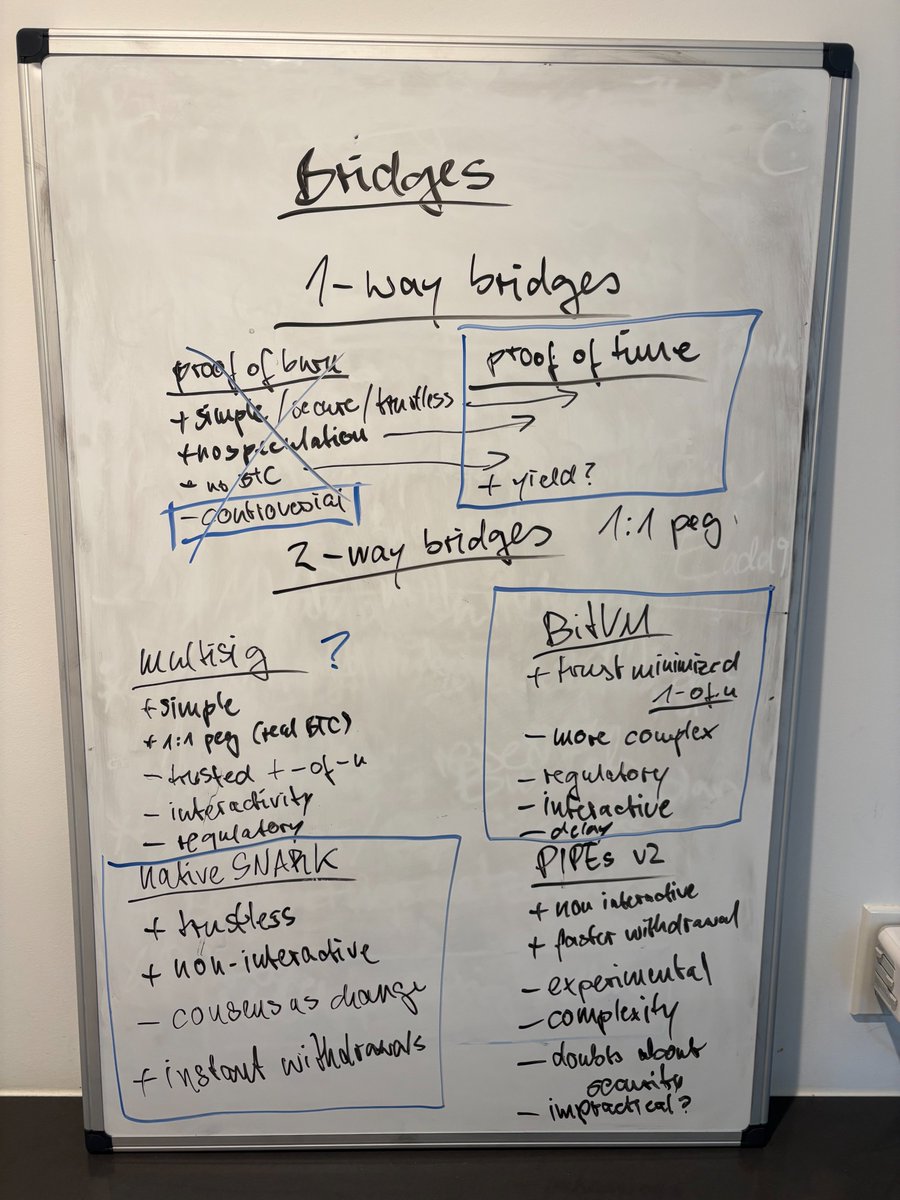 Bridges
1-way bridges
proof of burn
+ simple / secure / trustless
+ no speculation
- no BTC
- controversial
proof of time
+ yield?
2-way bridges
1:1 peg
multisig ?
+ simple
+ 1:1 peg (real BTC)
- trusted t-of-n
- interactivity
- regulatory
BitVM
+ trust minimized
1-of-n
- more complex
- regulatory
- interactive
- delay
native SNARK
+ trustless
+ non-interactive
- consensus change
+ instant withdrawals
PIPEs v2
+ non interactive
+ faster withdrawal
- experimental
- complexity
- doubts about
security
- impractical?